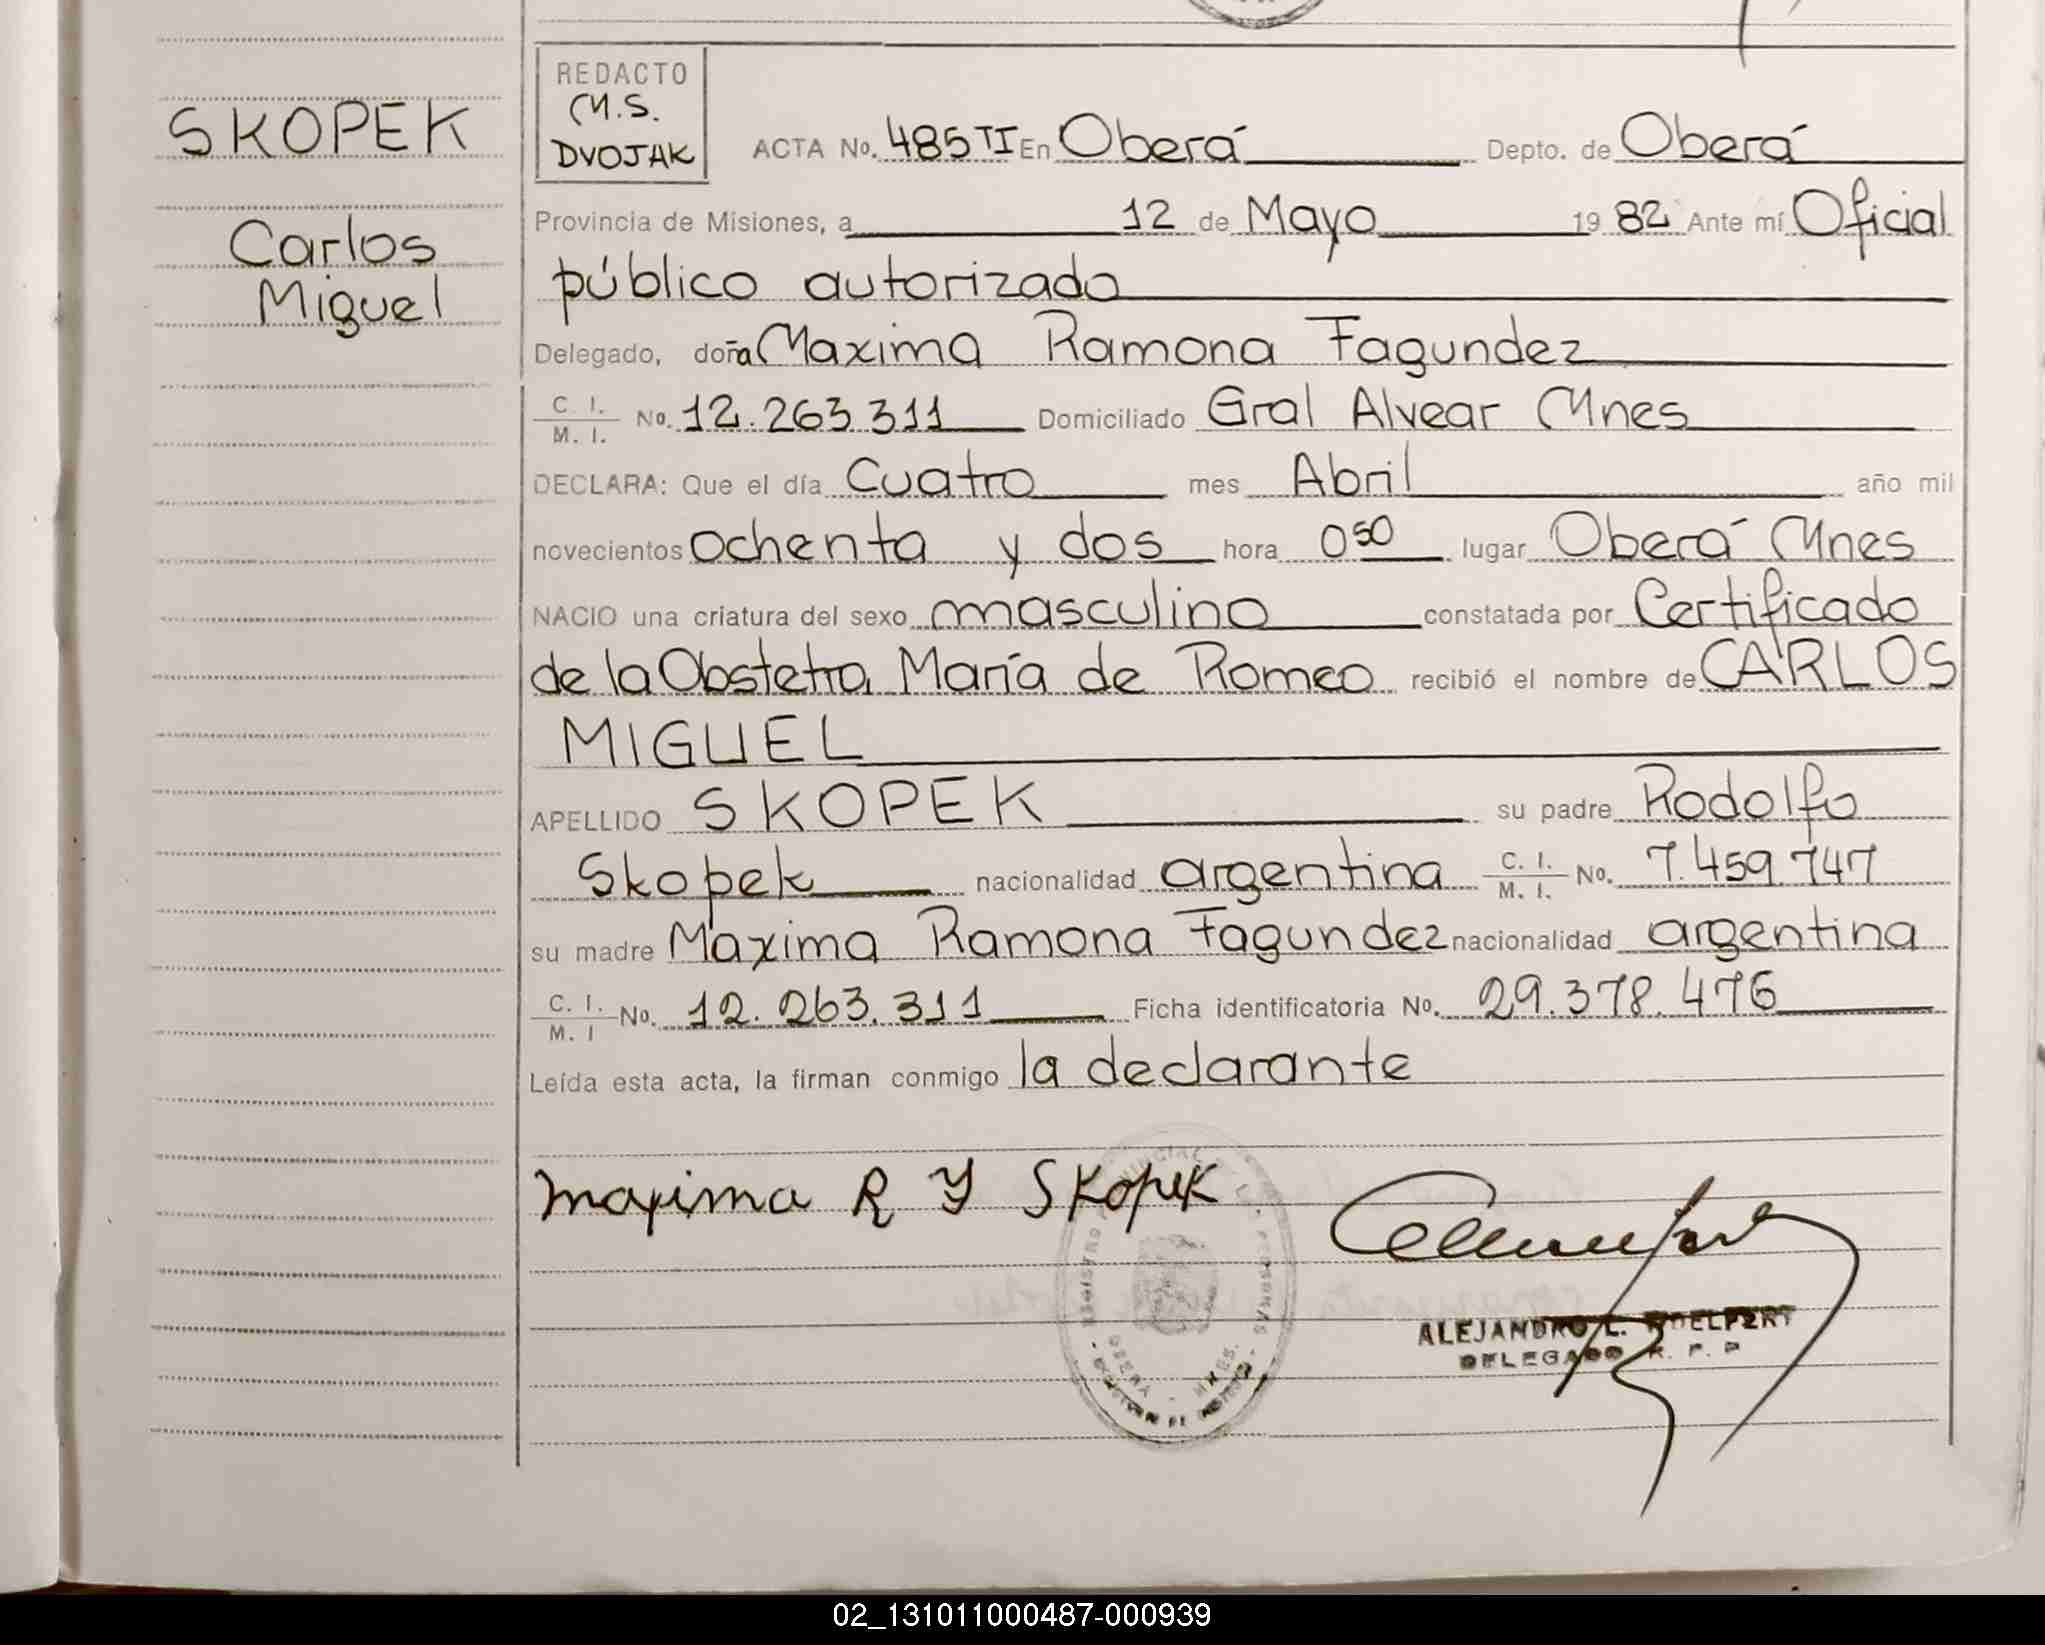 SKOPEK
Carlos
Miguel
REDACTO
M.S.
DVOJAK
ACTA No. 485 TI En Oberá Depto. de Oberá
Provincia de Misiones, a 12 de Mayo 19 82 Ante mí Oficial
público autorizado
Delegado, doña Maxima Ramona Fagundez
C. I. M. I. No. 12.263.311 Domiciliado Gral Alvear Mnes
DECLARA: Que el día Cuatro mes Abril año mil
novecientos ochenta y dos hora 0 50 lugar Oberá Mnes
NACIO una criatura del sexo masculino constatada por Certificado
de la Obstetra María de Romeo recibió el nombre de CARLOS
MIGUEL
APELLIDO SKOPEK su padre Rodolfo
Skopek nacionalidad argentina C. I. M. I. No. 7.459.747
su madre Maxima Ramona Fagundez nacionalidad argentina
C. I. M. I No. 12.263.311 Ficha identificatoria No. 29.378.476
Leída esta acta, la firman conmigo la declarante
maxima R Y SKopeK
ALEJANDRO L.
DELEGADO R. P. P
OBERA - MNES.
02_131011000487-000939